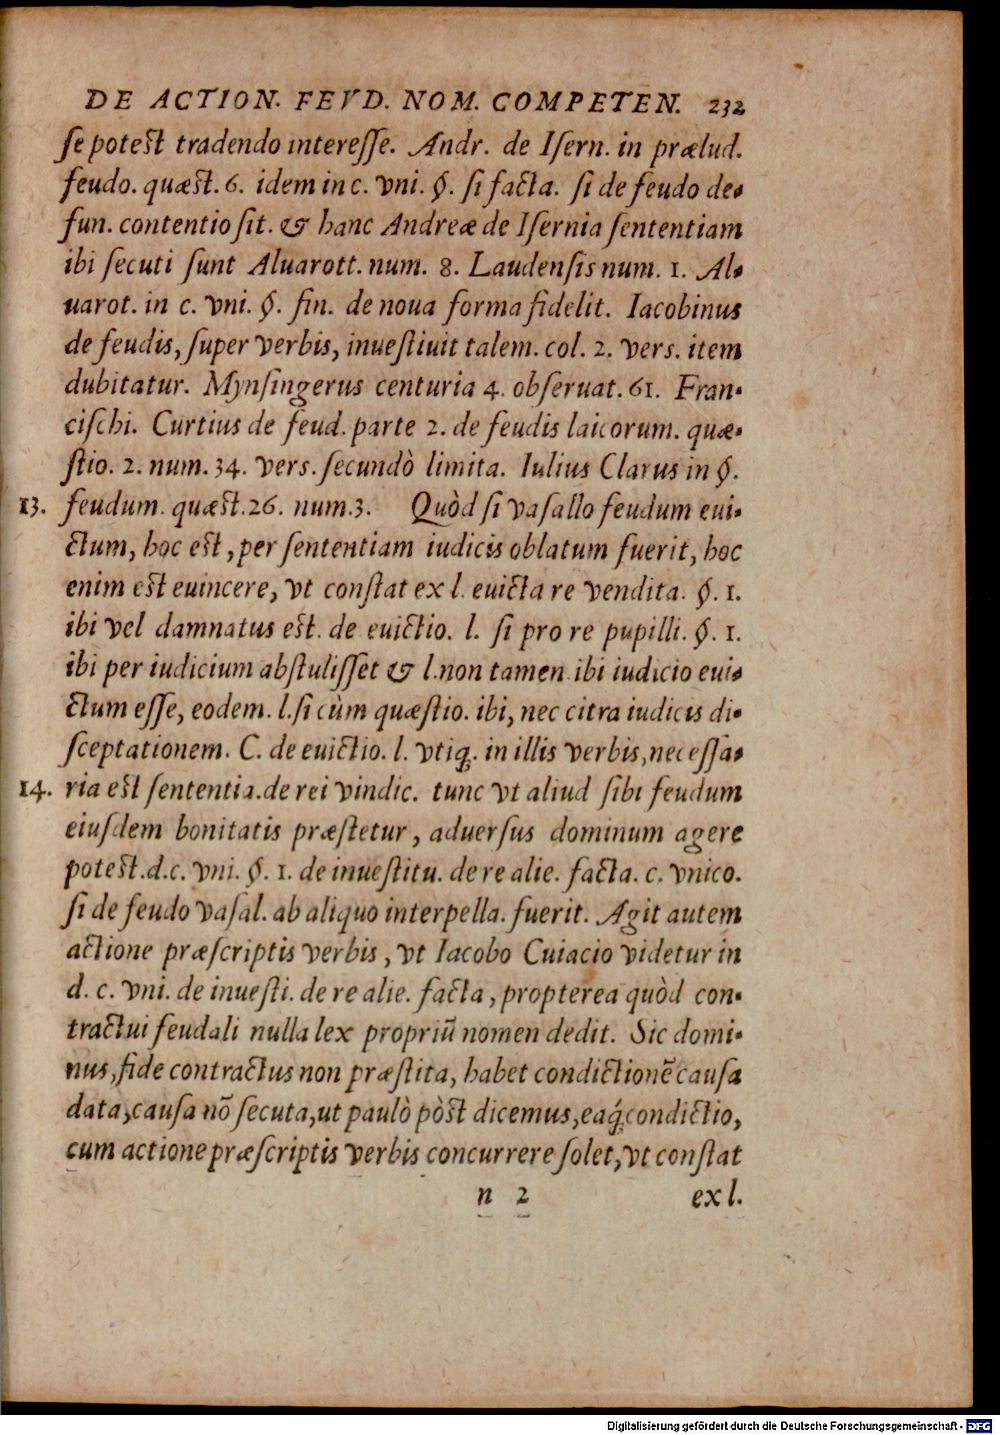 DE ACTION. FEVD. NOM. COMPETEN. 232
ſe poteſt tradendo intereſſe. Andr. de Iſern. in prælud.
feudo. quæſt. 6. idem in c. vni. §. ſi facta. ſi de feudo de-
fun. contentio ſit. & hanc Andreæ de Iſernia ſententiam
ibi ſecuti ſunt Aluarott. num. 8. Laudenſis num. 1. Al-
uarot. in c. vni. §. fin. de noua forma fidelit. Iacobinus
de feudis, ſuper verbis, inueſtiuit talem. col. 2. verſ. item
dubitatur. Mynſingerus centuria 4. obſeruat. 61. Fran-
ciſchi. Curtius de feud. parte 2. de feudis laicorum. quæ-
ſtio. 2. num. 34. verſ. ſecundò limita. Iulius Clarus in §.
13. feudum. quæſt. 26. num. 3. Quòd ſi vaſallo feudum eui-
ctum, hoc eſt, per ſententiam iudicis oblatum fuerit, hoc
enim eſt euincere, vt conſtat ex l. euicta re vendita. §. 1.
ibi vel damnatus eſt. de euictio. l. ſi pro re pupilli. §. 1.
ibi per iudicium abſtuliſſet & l. non tamen. ibi iudicio eui-
ctum eſſe, eodem. l. ſi cùm quæſtio. ibi, nec citra iudicis di-
ſceptationem. C. de euictio. l. vtiq;. in illis verbis, neceſſa-
14. ria eſt ſententia. de rei vindic. tunc vt aliud ſibi feudum
eiuſdem bonitatis præſtetur, aduerſus dominum agere
poteſt. d. c. vni. §. 1. de inueſtitu. de re alie. facta. c. vnico.
ſi de feudo vaſal. ab aliquo interpella. fuerit. Agit autem
actione præſcriptis verbis, vt Iacobo Cuiacio videtur in
d. c. vni. de inueſti. de re alie. facta, propterea quòd con-
tractui feudali nulla lex propriũ nomen dedit. Sic domi-
nus, fide contractus non præſtita, habet condictionẽ cauſa
data, cauſa nõ ſecuta, ut paulò pòſt dicemus, eaq́; condictio,
cum actione præſcriptis verbis concurrere ſolet, vt conſtat
n 2 ex l.
Digitalisierung gefördert durch die Deutsche Forschungsgemeinschaft - DFG